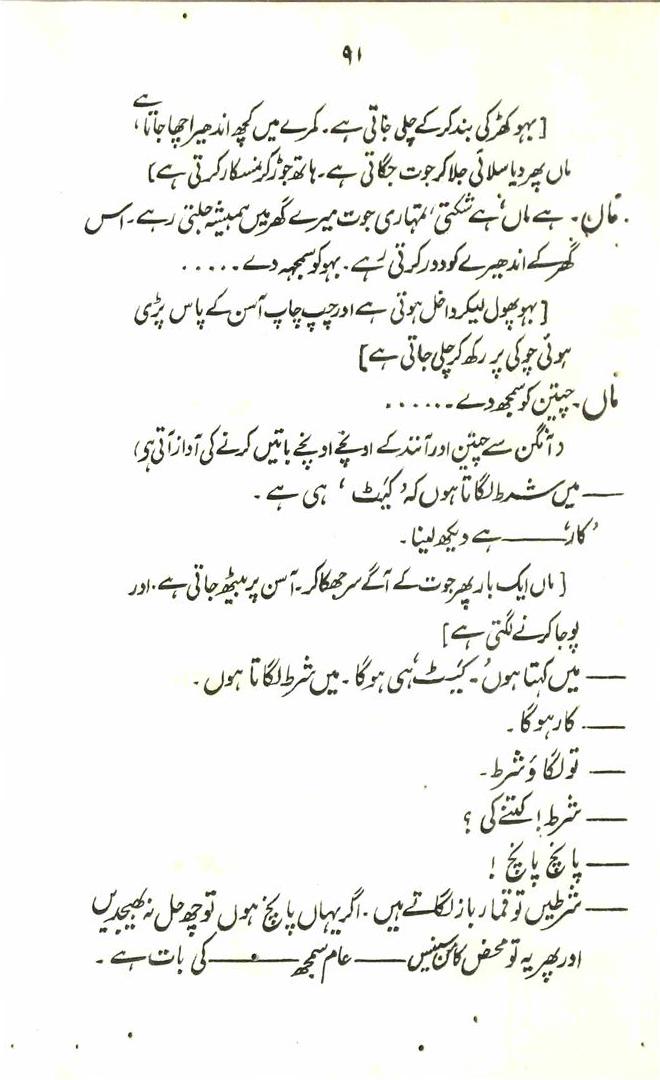 ۹۱
[ بہو کھڑکی بند کر کے چلی جاتی ہے۔ کمرے میں کچھ اندھیرا چھا جاتا ہے،
ماں پھر دیا سلائی جلا کر جوت جگاتی ہے۔ ہاتھ جوڑ کر نمسکار کرتی ہے]
ماں۔ ہے ماں، ہے شکتی، تمہاری جوت میرے گھر میں ہمیشہ جلتی رہے۔ اس
گھر کے اندھیرے کو دور کرتی رہے۔ بہو کو سمجھ دے.....
[ بہو پھول لیکر داخل ہوتی ہے اور چپ چاپ آسن کے پاس پڑی
ہوئی چوکی پر رکھ کر چلی جاتی ہے]
ماں۔ چیتن کو سمجھ دے......
( آنگن سے چیتن اور آنند کے اونچے اونچے باتیں کرنے کی آواز آتی ہے)
— میں شرط لگاتا ہوں کہ ’کیٹ‘ ہی ہے۔
’کار‘ — ہے دیکھ لینا۔
[ ماں ایک بار پھر جوت کے آگے سر جھکا کر۔ آسن پر بیٹھ جاتی ہے۔ اور
پوجا کرنے لگتی ہے]
— میں کہتا ہوں۔ ’کیٹ‘ ہی ہوگا۔ میں شرط لگاتا ہوں۔
— کار ہوگا۔
— تو لگاؤ شرط۔
— شرط! کتنے کی ؟
— پانچ پانچ !
— شرطیں تو قمار باز لگاتے ہیں۔ اگر یہاں پانچ ہوں تو چھ حل نہ بھیجدیں
اور پھر یہ تو محض کامن سینس — عام سمجھ — کی بات ہے۔